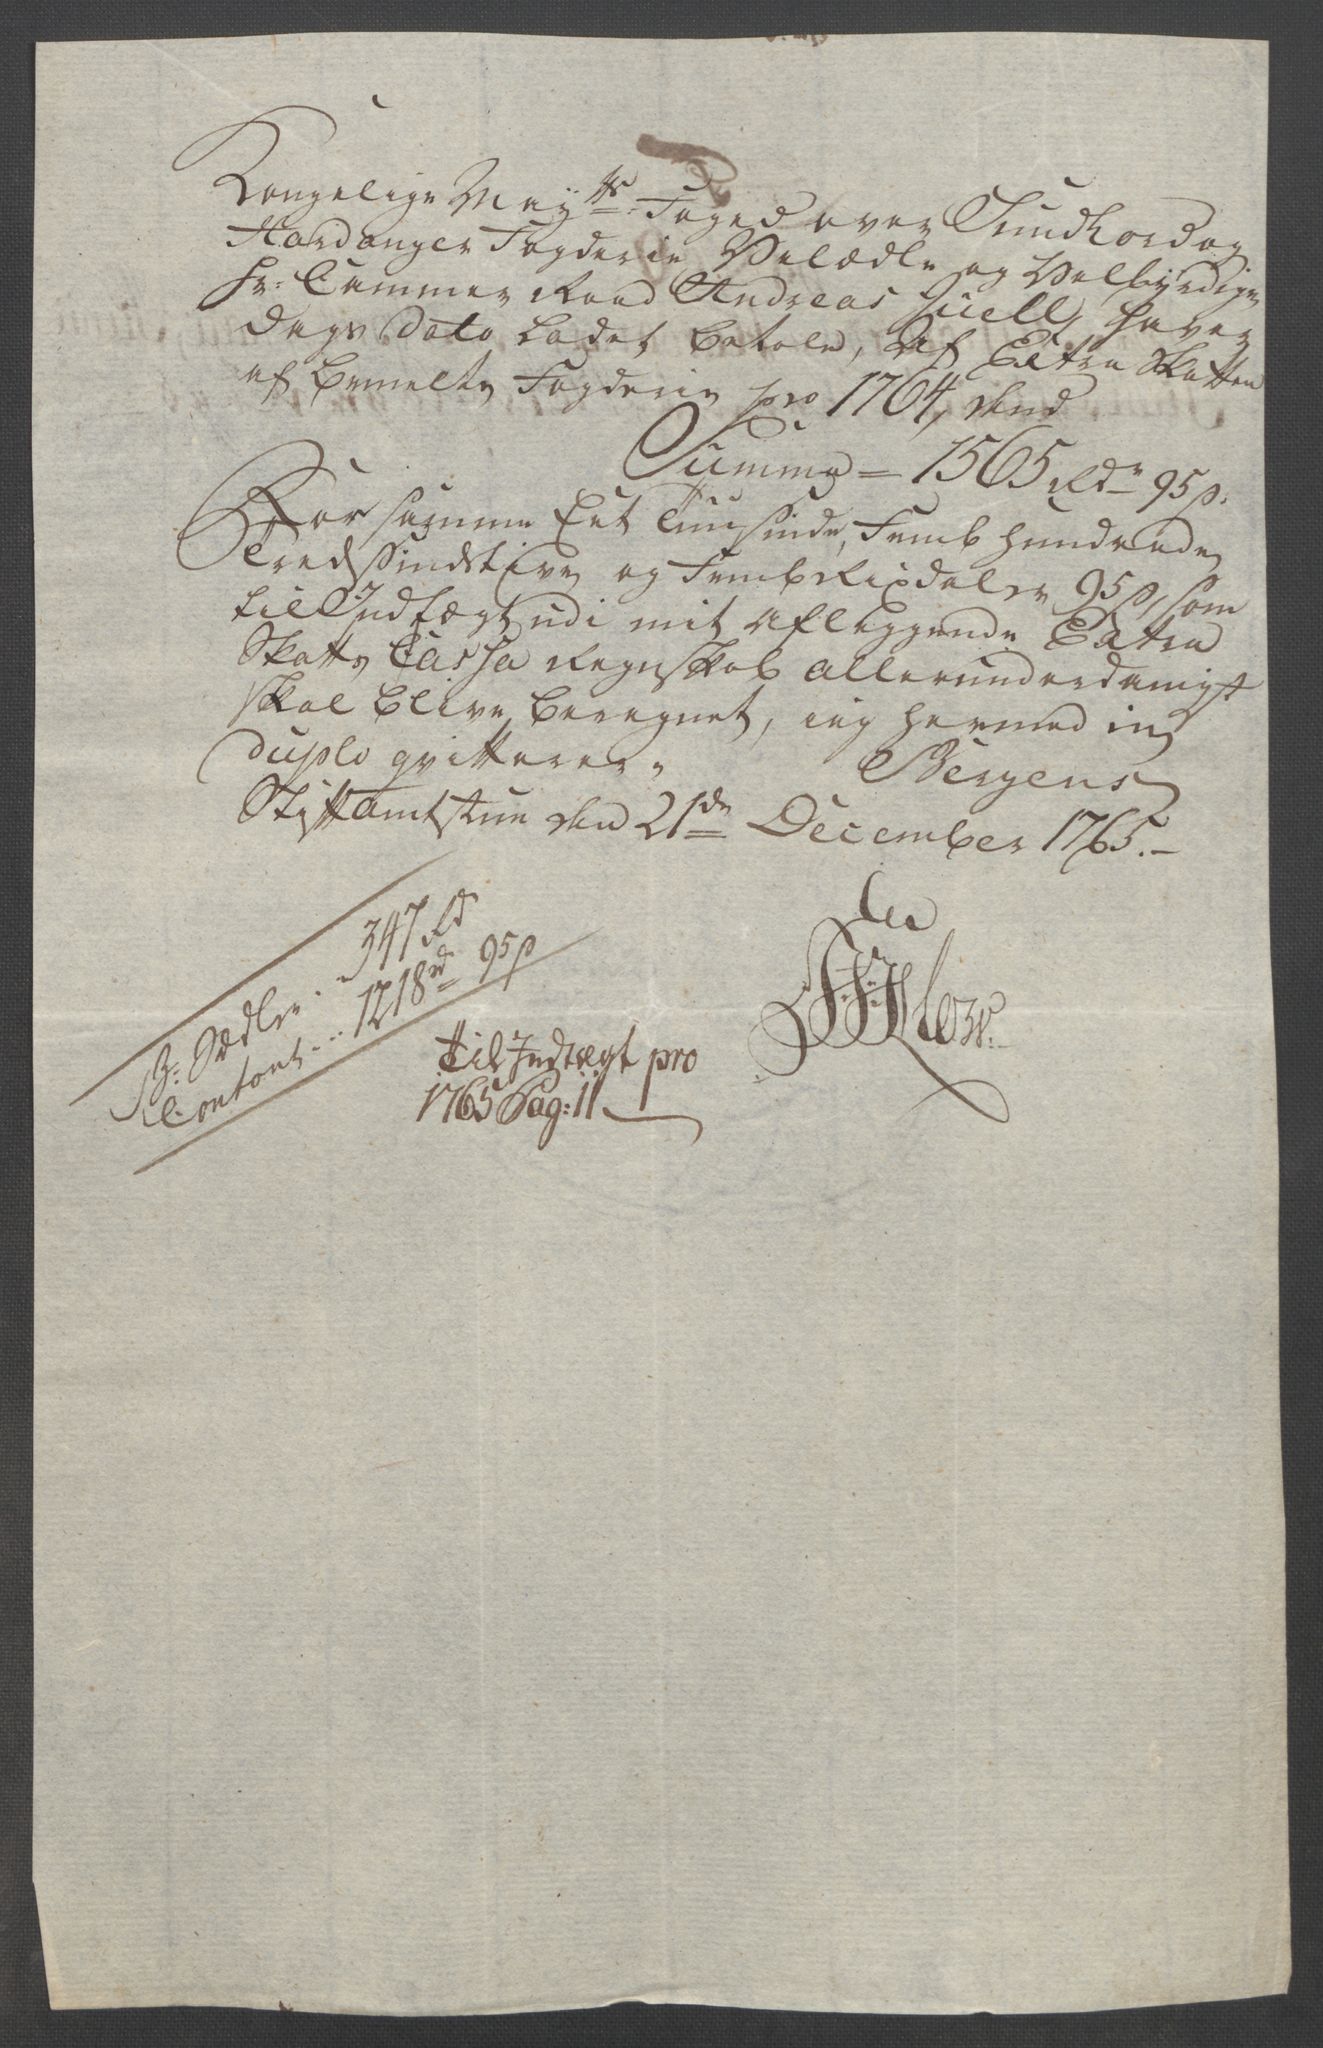 Kongelige May:tts Foged over Sundhord og
Hardanger Fogderie Velædle og Velbyrdige
Hr: Cammer Raad Andreas Juell, haver
dags Dato ladet betale, Af Extra Skatten
af bemelte Fogderie pro 1764, dend
Summa = 1565 Rdr 95 s.
For samme Eet Tuusinde, Femb hundrede
Tredssindstive og Femb Rixdaler 95 s, som
til Indtægt udi mit aflæggende Extra
Skatts Cassa Regnskab allerunderdanigst
skal blive beregnet, ieg hermed in
duplo qvitterer.
Bergens
Stiftamtstue den 21de December 1765.-
B: Sedler . 347 Rd
Contant ... 1218 rd 95 s
Til Indtægt pro
1765 Pag: 11